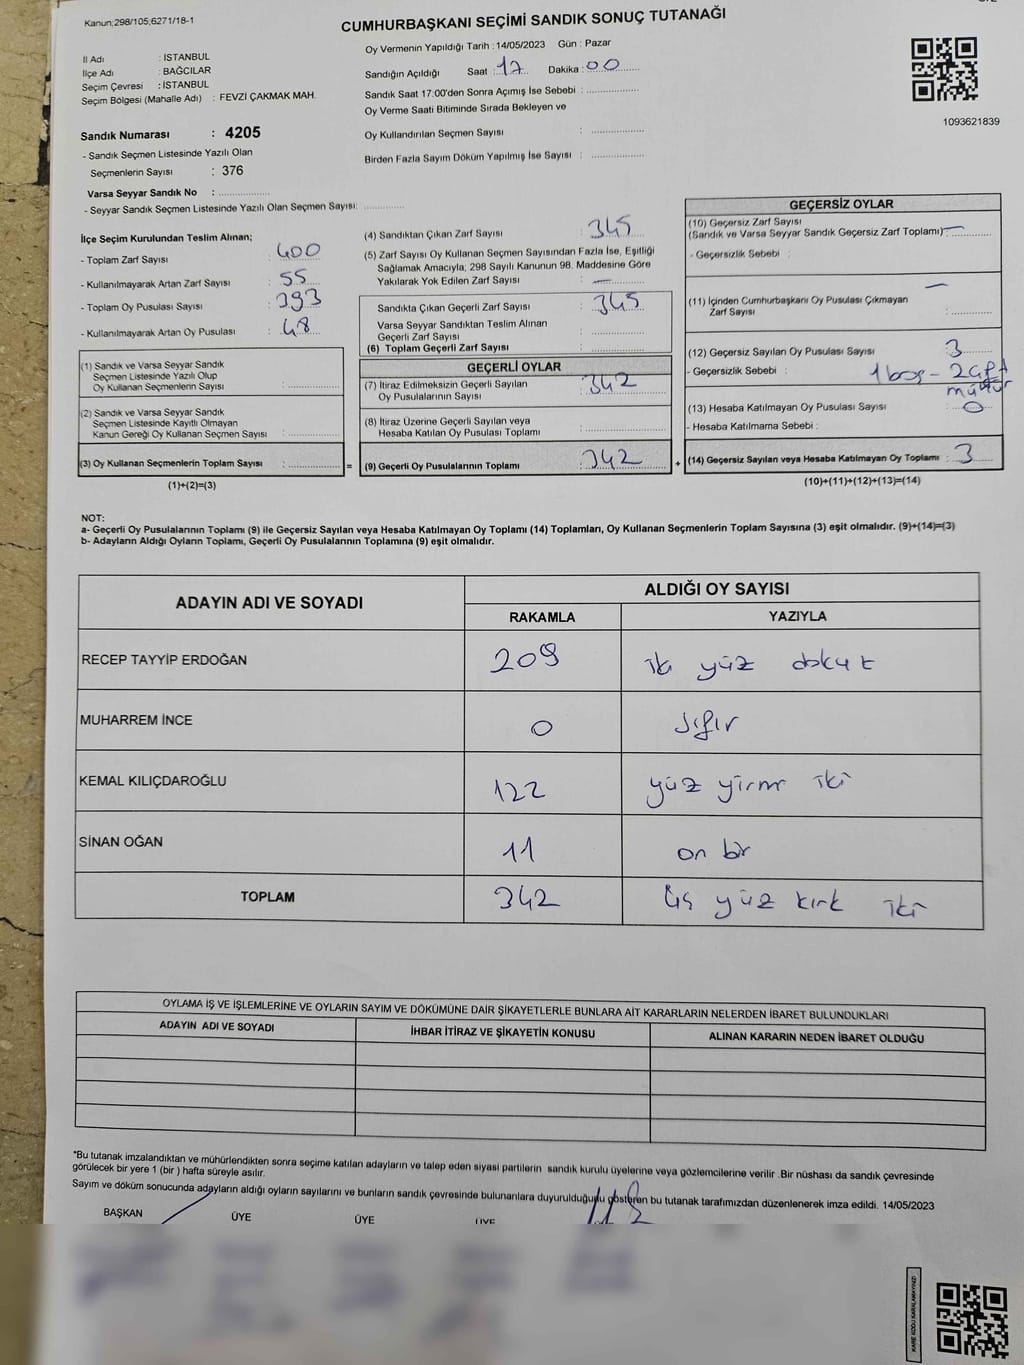 Kanun;298/105;6271/18-1
CUMHURBAŞKANI SEÇİMİ SANDIK SONUÇ TUTANAĞI
İl Adı : İSTANBUL
İlçe Adı : BAĞCILAR
Seçim Çevresi : İSTANBUL
Seçim Bölgesi (Mahalle Adı) : FEVZİ ÇAKMAK MAH.
Sandık Numarası : 4205
- Sandık Seçmen Listesinde Yazılı Olan
Seçmenlerin Sayısı : 376
Varsa Seyyar Sandık No :
- Seyyar Sandık Seçmen Listesinde Yazılı Olan Seçmen Sayısı:
Oy Vermenin Yapıldığı Tarih : 14/05/2023 Gün : Pazar
Sandığın Açıldığı Saat : 17 Dakika : 00
Sandık Saat 17:00'den Sonra Açımış İse Sebebi :
Oy Verme Saati Bitiminde Sırada Bekleyen ve
Oy Kullandırılan Seçmen Sayısı :
Birden Fazla Sayım Döküm Yapılmış İse Sayısı :
1093621839
İlçe Seçim Kurulundan Teslim Alınan;
- Toplam Zarf Sayısı : 400
- Kullanılmayarak Artan Zarf Sayısı : 55
- Toplam Oy Pusulası Sayısı : 393
- Kullanılmayarak Artan Oy Pusulası : 48
(1) Sandık ve Varsa Seyyar Sandık
Seçmen Listesinde Yazılı Olup
Oy Kullanan Seçmenlerin Sayısı :
(2) Sandık ve Varsa Seyyar Sandık
Seçmen Listesinde Kayıtlı Olmayan
Kanun Gereği Oy Kullanan Seçmen Sayısı :
(3) Oy Kullanan Seçmenlerin Toplam Sayısı : =
(1)+(2)=(3)
(4) Sandıktan Çıkan Zarf Sayısı : 345
(5) Zarf Sayısı Oy Kullanan Seçmen Sayısından Fazla İse, Eşitliği
Sağlamak Amacıyla; 298 Sayılı Kanunun 98. Maddesine Göre
Yakılarak Yok Edilen Zarf Sayısı : —
Sandıkta Çıkan Geçerli Zarf Sayısı : 345
Varsa Seyyar Sandıktan Teslim Alınan
Geçerli Zarf Sayısı :
(6) Toplam Geçerli Zarf Sayısı :
GEÇERLİ OYLAR
(7) İtiraz Edilmeksizin Geçerli Sayılan
Oy Pusulalarının Sayısı : 342
(8) İtiraz Üzerine Geçerli Sayılan veya
Hesaba Katılan Oy Pusulası Toplamı :
(9) Geçerli Oy Pusulalarının Toplamı : 342 +
GEÇERSİZ OYLAR
(10) Geçersiz Zarf Sayısı
(Sandık ve Varsa Seyyar Sandık Geçersiz Zarf Toplamı): —
- Geçersizlik Sebebi :
(11) İçinden Cumhurbaşkanı Oy Pusulası Çıkmayan
Zarf Sayısı : —
(12) Geçersiz Sayılan Oy Pusulası Sayısı : 3
- Geçersizlik Sebebi : 1 boş - 2 çift
mühür
(13) Hesaba Katılmayan Oy Pusulası Sayısı : 0
- Hesaba Katılmama Sebebi :
(14) Geçersiz Sayılan veya Hesaba Katılmayan Oy Toplamı : 3
(10)+(11)+(12)+(13)=(14)
NOT:
a- Geçerli Oy Pusulalarının Toplamı (9) ile Geçersiz Sayılan veya Hesaba Katılmayan Oy Toplamı (14) Toplamları, Oy Kullanan Seçmenlerin Toplam Sayısına (3) eşit olmalıdır. (9)+(14)=(3)
b- Adayların Aldığı Oyların Toplamı, Geçerli Oy Pusulalarının Toplamına (9) eşit olmalıdır.
ADAYIN ADI VE SOYADI ALDIĞI OY SAYISI
RAKAMLA YAZIYLA
RECEP TAYYİP ERDOĞAN 209 iki yüz dokuz
MUHARREM İNCE 0 sıfır
KEMAL KILIÇDAROĞLU 122 yüz yirmi iki
SİNAN OĞAN 11 on bir
TOPLAM 342 üç yüz kırk iki
OYLAMA İŞ VE İŞLEMLERİNE VE OYLARIN SAYIM VE DÖKÜMÜNE DAİR ŞİKAYETLERLE BUNLARA AİT KARARLARIN NELERDEN İBARET BULUNDUKLARI
ADAYIN ADI VE SOYADI İHBAR İTİRAZ VE ŞİKAYETİN KONUSU ALINAN KARARIN NEDEN İBARET OLDUĞU
*Bu tutanak imzalandıktan ve mühürlendikten sonra seçime katılan adayların ve talep eden siyasi partilerin sandık kurulu üyelerine veya gözlemcilerine verilir .Bir nüshası da sandık çevresinde
görülecek bir yere 1 (bir ) hafta süreyle asılır.
Sayım ve döküm sonucunda adayların aldığı oyların sayılarını ve bunların sandık çevresinde bulunanlara duyurulduğunu gösteren bu tutanak tarafımızdan düzenlenerek imza edildi. 14/05/2023
BAŞKAN ÜYE ÜYE ÜYE
KARE KODU KARALAMAYINIZ!